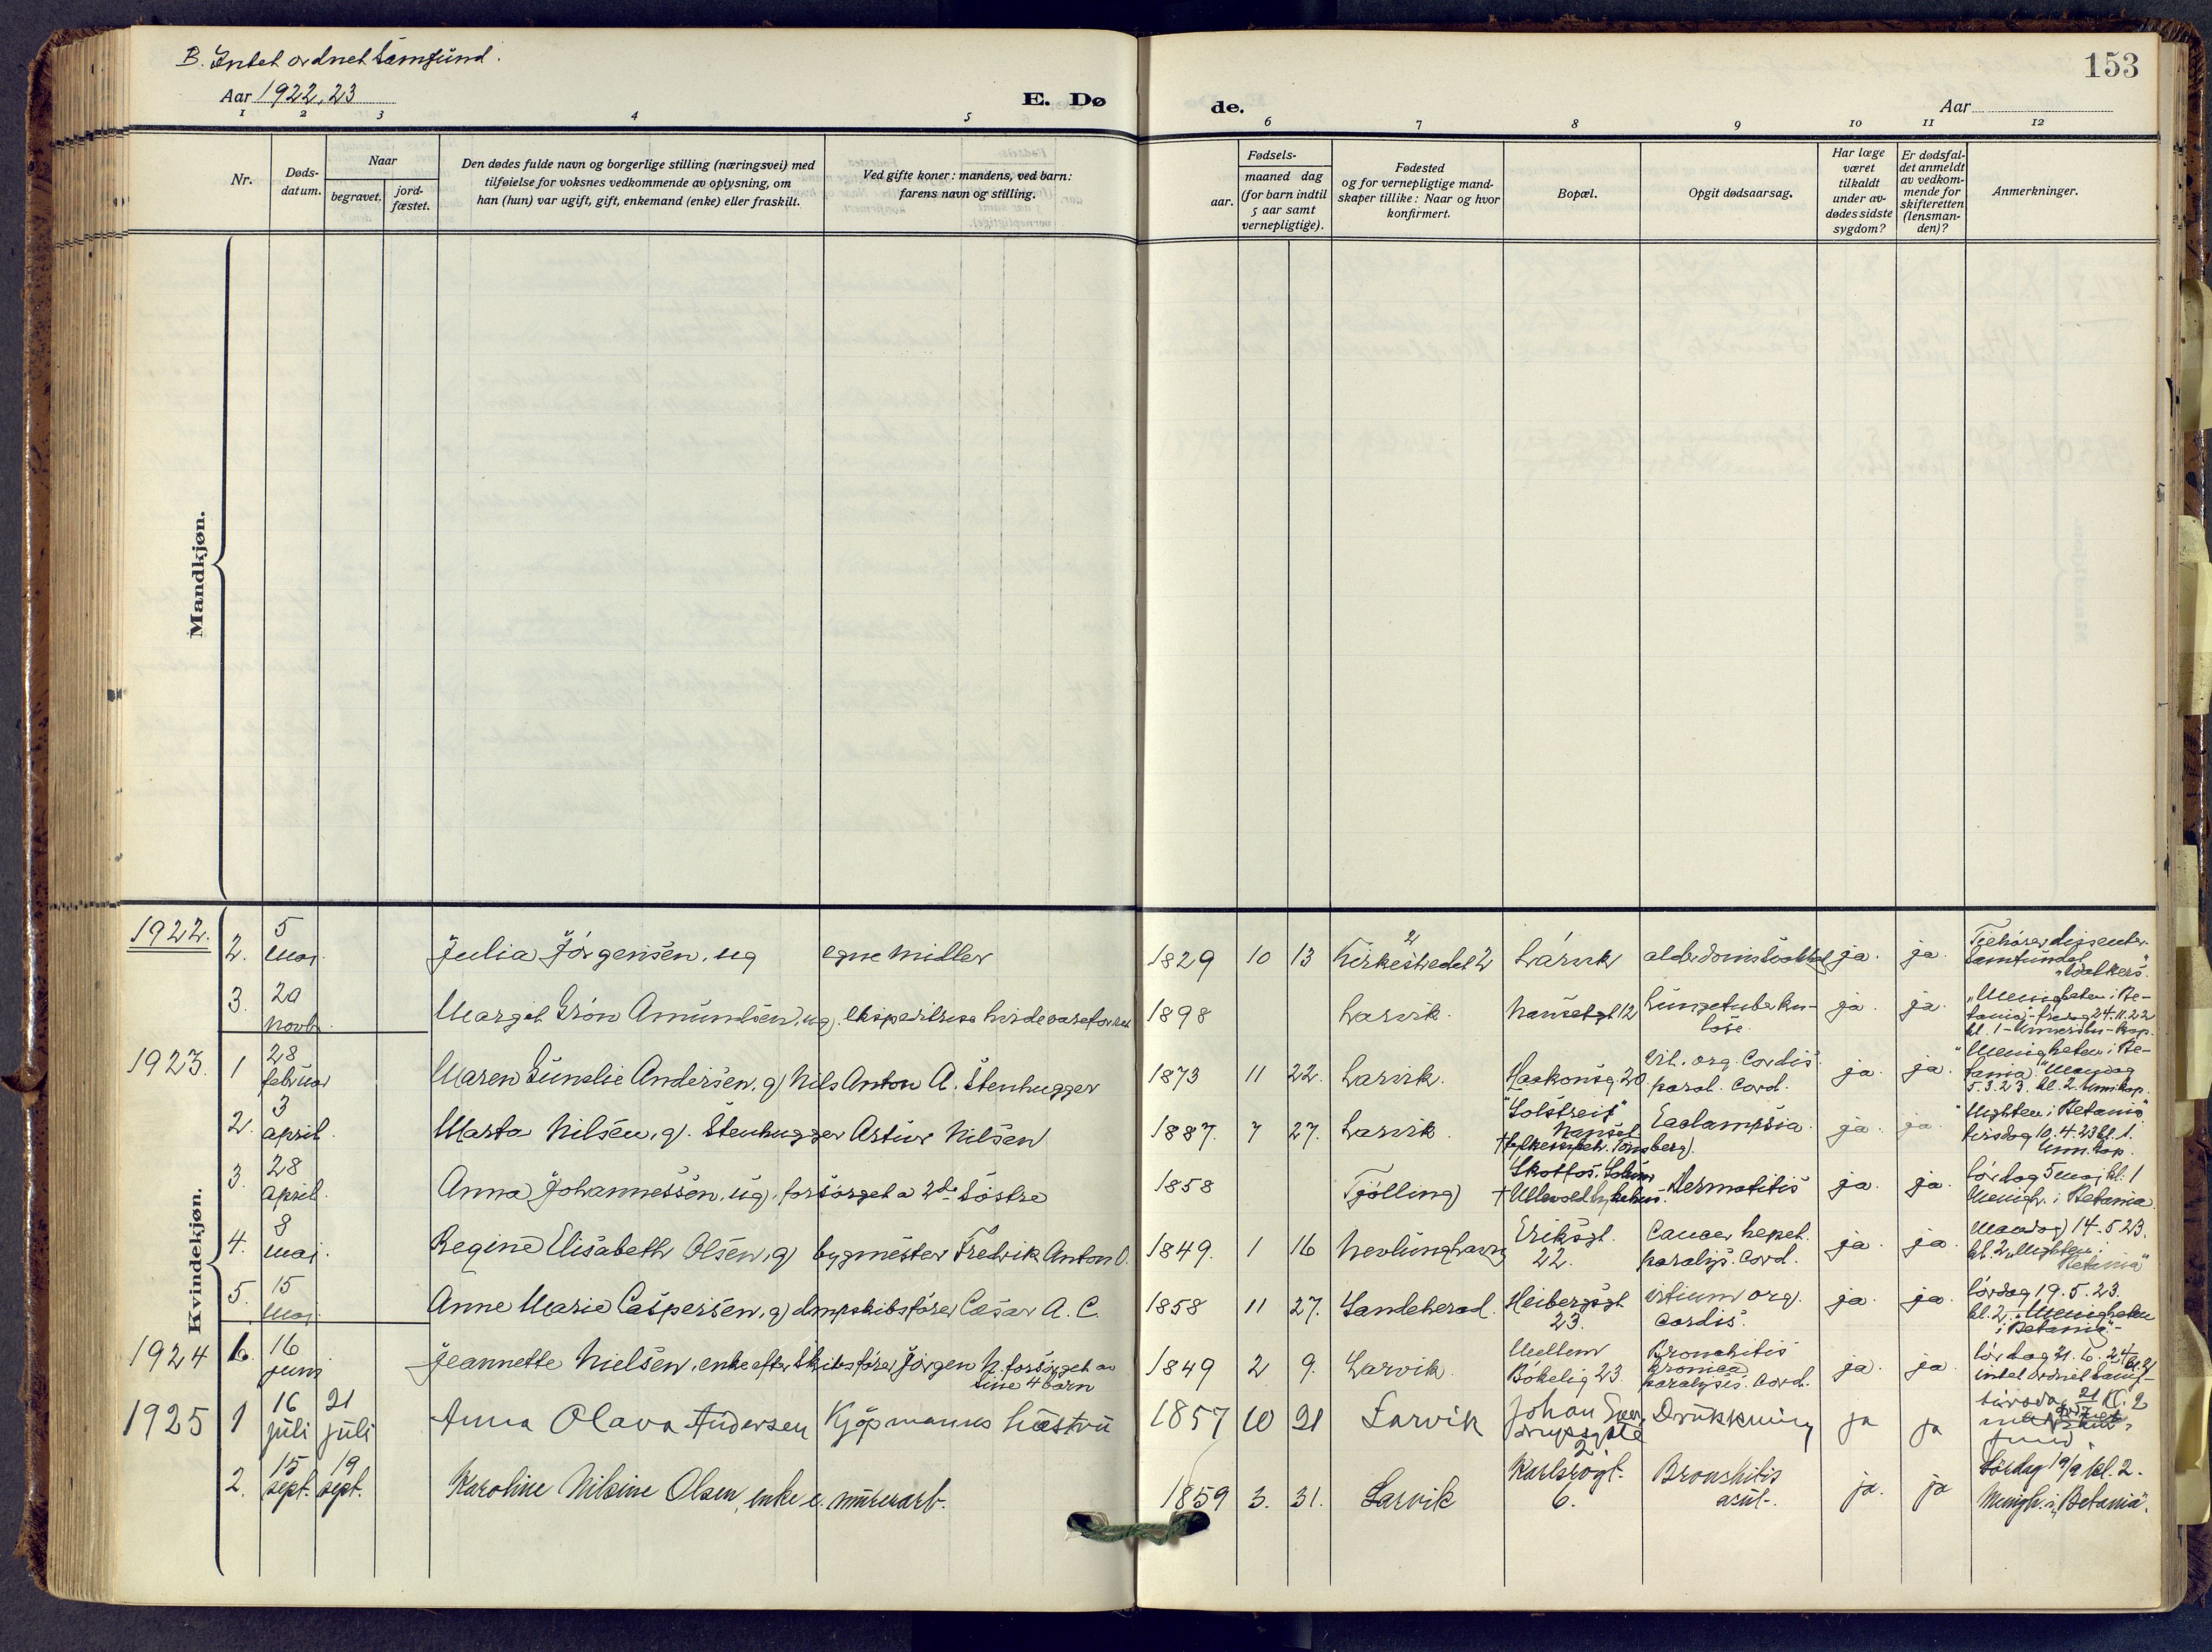 B. Intet ordnet Samfund.
153
Aar 1922, 23
E. Dø
de.
Aar
1 2 3 4 5 6 7 8 9 10 11 12
Nr.
Døds-
datum.
Naar
begravet.
jord-
fæstet.
Den dødes fulde navn og borgerlige stilling (næringsvei) med
tilføielse for voksnes vedkommende av oplysning, om
han (hun) var ugift, gift, enkemand (enke) eller fraskilt.
Ved gifte koner: mandens, ved barn:
farens navn og stilling.
Fødsels-
aar.
maaned dag
(for barn indtil
5 aar samt
vernepligtige).
Fødested
og for vernepligtige mand-
skaper tillike: Naar og hvor
konfirmert.
Bopæl.
Opgit dødsaarsag.
Har læge
været
tilkaldt
under av-
dødes sidste
sygdom?
Er dødsfal-
det anmeldt
av vedkom-
mende for
skifteretten
(lensman-
den)?
Anmerkninger.
Mandkjøn.
Kvindekjøn.
1922.
2. 5 mai. Julia Jørgensen, ug egne midler 1829 10 13 Kirkestredet 2 Larvik ja. ja.
Tilhører dissenter-
samfundet
3. 20 novb. Margit Grøn Amundsen, ug. 1898 Larvik. Nansetgt 12 Lungetuberku-
lose. ja. ja.
"Menigheten i Be-
tania" fredag 24.11.22
kl. 1
1923.
1 28 februar Maren Gunelie Andersen, g) Nils Anton A. Stenhugger 1873 11 22. Larvik. Haakonsg. 20 Vit. org. Cordis
paral. Cord. ja. ja.
"Menigheten i Be-
tania" Mandag
5.3.23. kl. 2.
2. 3 april. Marta Nilsen, g). Stenhugger Artur Nilsen 1887. 7 27. Larvik. "Solstreif"
Nanset
Tønsberg). Eaclampsia. ja. ja.
"Mghten i Betania"
tirsdag 10.4.23 kl. 1.
3. 28 april. Anna Johannessen, ug), forsørget a 2de Søstre 1858 Tjølling) Skottos. Solum
† Ullevold sykehus. Dermatitis ja. ja.
lördag 5 maj kl. 1
Menigh. i Betania
4. 8 maj. Regine Elisabeth Olsen, g) bygmester Fredrik Anton O. 1849. 1 16 Nevlunghavn Eriksgt.
22. Cancer hepat.
paralys. Cord. ja. ja.
Mandag) 14.5.23.
kl. 2 "Mighten i
Betania"
5. 15 maj Anne Marie Caspersen, g) dmpskibsfører Cæsar A. C. 1858 11 27. Sandeherad. Heibergsgt
23. vitium org.
cordis. ja. ja.
lördag 19.5.23.
kl. 2. "Menigheten
i Betania"
1924
6. 16 juni Jeannette Nielsen, enke efter Skibsfører Jörgen N. forsørget av
sine 4 børn 1849 2 9. Larvik. Mellem
Bökelig 23 Bronchitis
kronica
paralysis. Cord. ja. ja.
lördag 21.6.24 kl. 2
intet ordnet samf-
1925
1 16 juli 21 juli Anna Olava Andersen Kjöpmanns hustru 1857 10 21 Larvik Johan Sver-
drupsgate
2. Drukkning ja ja
tirsdag 21 kl. 2
2. 15 sept. 19 sept. Karoline Nilsine Olsen, enke e. murerarb. 1859 3. 31. Larvik Karlsrogt.
6. Bronshitis
acut. ja. ja
Lördag 19/9 kl. 2.
Menigh. i "Betania".